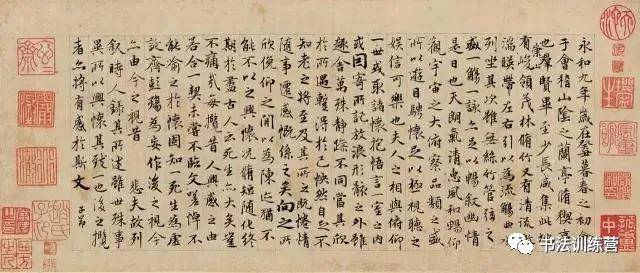 永和九年歲在癸丑暮春之初會
于會稽山陰之蘭亭脩稧事
也群賢畢至少長咸集此地
有崇山峻領茂林脩竹又有清流激
湍暎帶左右引以為流觴曲水
列坐其次雖無絲竹管弦之
盛一觴一詠亦足以暢敘幽情
是日也天朗氣清惠風和暢仰
觀宇宙之大俯察品類之盛
所以遊目騁懷足以極視聽之
娛信可樂也夫人之相與俯仰
一世或取諸懷抱悟言一室之內
或因寄所託放浪形骸之外雖
趣舍萬殊靜躁不同當其欣
於所遇暫得於己怏然自足不
知老之將至及其所之既惓情
隨事遷感慨係之矣向之所
欣俛仰之間以為陳迹猶不
能不以之興懷況脩短隨化終
期於盡古人云死生亦大矣豈
不痛哉每攬昔人興感之由
若合一契未嘗不臨文嗟悼不
能喻之於懷固知一死生為虛
誕齊彭殤為妄作後之視今
亦由今之視昔悲夫故列
敘時人錄其所述雖世殊事
異所以興懷其致一也後之攬
者亦將有感於斯文
子昂
书法训练营